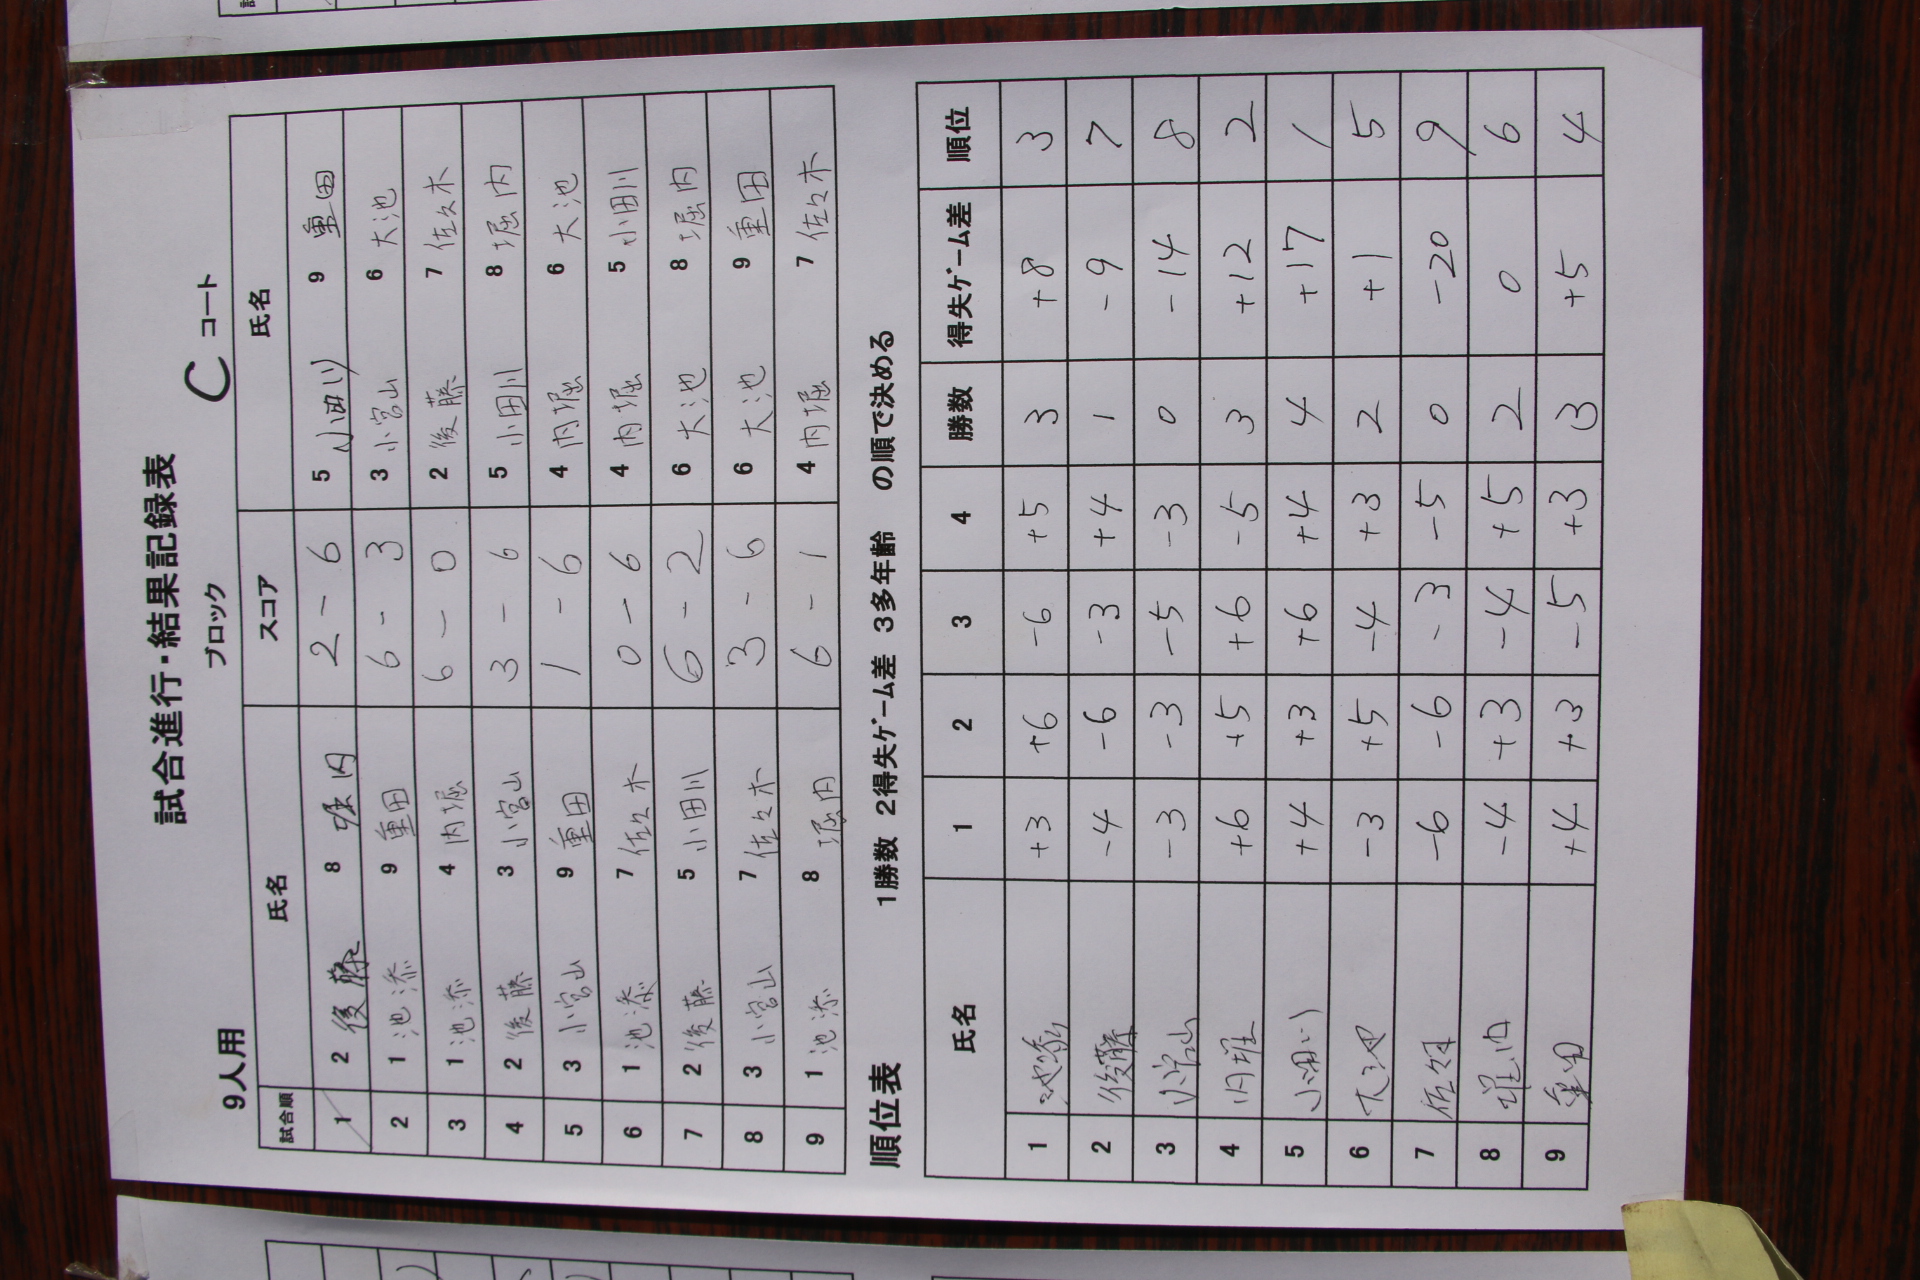 試合進行・結果記録表
9人用 ブロック C コート
試合順 氏名 スコア 氏名
1 2 後藤 8 堀内 2-6 5 小田川 9 重田
2 1 池添 9 重田 6-3 3 小宮山 6 大池
3 1 池添 4 内堀 6-0 2 後藤 7 佐々木
4 2 後藤 3 小宮山 3-6 5 小田川 8 堀内
5 3 小宮山 9 重田 1-6 4 内堀 6 大池
6 1 池添 7 佐々木 0-6 4 内堀 5 小田川
7 2 後藤 5 小田川 6-2 6 大池 8 堀内
8 3 小宮山 7 佐々木 3-6 6 大池 9 重田
9 1 池添 8 堀内 6-1 4 内堀 7 佐々木
順位表 1勝数 2得失ゲーム差 3多年齢 の順で決める
氏名 1 2 3 4 勝数 得失ゲーム差 順位
1 池添 +3 +6 -6 +5 3 +8 3
2 後藤 -4 -6 -3 +4 1 -9 7
3 小宮山 -3 -3 -5 -3 0 -14 8
4 内堀 +6 +5 +6 -5 3 +12 2
5 小田川 +4 +3 +6 +4 4 +17 1
6 大池 -3 +5 -4 +3 2 +1 5
7 佐々木 -6 -6 -3 -5 0 -20 9
8 堀内 -4 +3 -4 +5 2 0 6
9 重田 +4 +3 -5 +3 3 +5 4